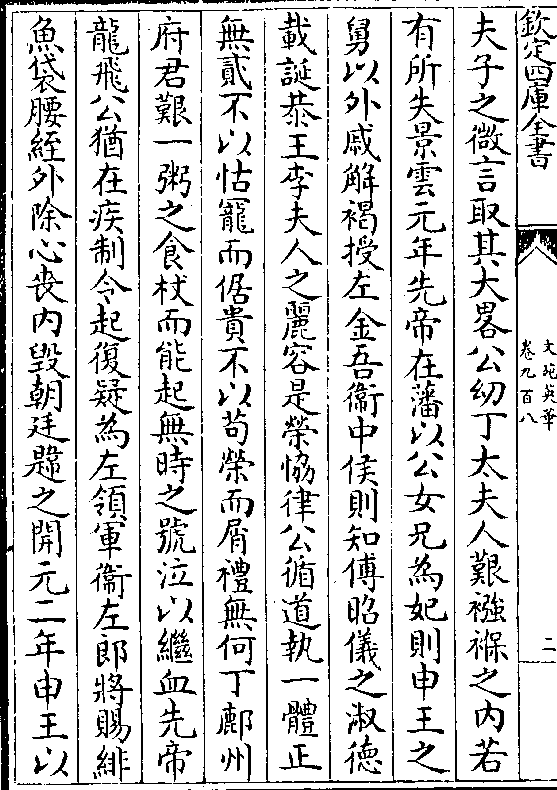 欽定四庫全書
文苑英華
卷九百八
二
夫子之微言取其大畧公幼丁太夫人艱襁褓之内若
有所失景雲元年先帝在藩以公女兄為妃則申王之
舅以外戚解褐授左金吾衞中侯則知傅昭儀之淑德
載誕恭王李夫人之麗容是榮恊律公循道執一體正
無貳不以怙寵而倨貴不以苟榮而屑禮無何丁鄜州
府君艱一粥之食杖而能起無時之號泣以繼血先帝
龍飛公猶在疾制令起復疑為左領軍衞左郎將賜緋
魚袋腰絰外除心喪内毁朝廷韙之開元二年申王以